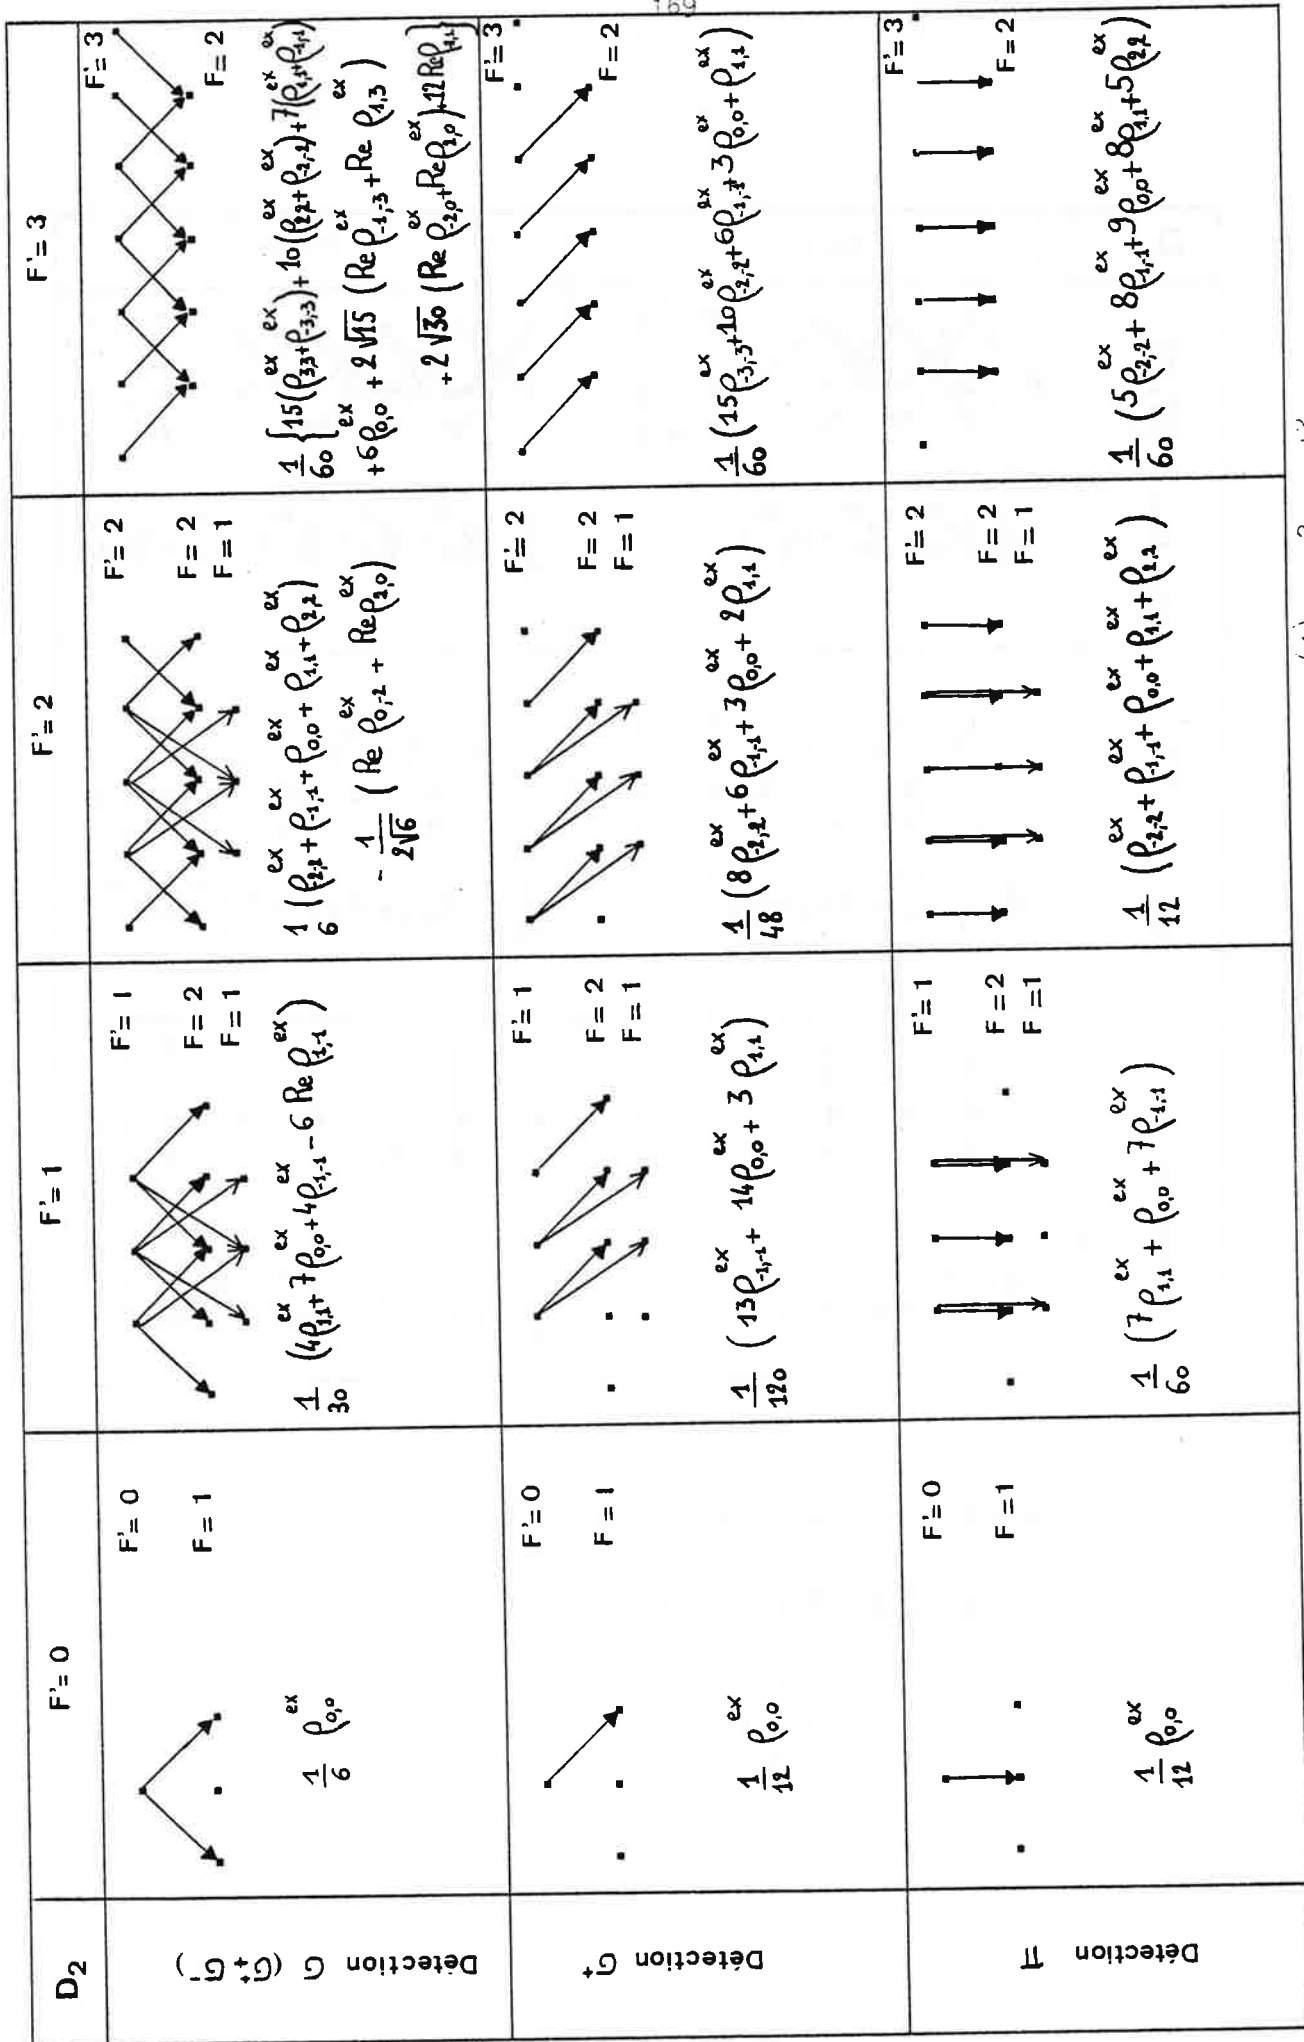 169
D₂
F'= 0
F'= 1
F'= 2
F'= 3
Détection σ (σ⁺ σ⁻)
F'= 0
F = 1
1/6 ρ^ex_0,0
F'= 1
F = 2
F = 1
1/30 (4ρ^ex_1,1 + 7ρ^ex_0,0 + 4ρ^ex_-1,-1 - 6 Re ρ^ex_1,-1)
F'= 2
F = 2
F = 1
1/6 (ρ^ex_-2,-2 + ρ^ex_-1,-1 + ρ^ex_0,0 + ρ^ex_1,1 + ρ^ex_2,2)
- 1/2√6 (Re ρ^ex_0,-2 + Re ρ^ex_2,0)
F'= 3
F = 2
1/60 {15(ρ^ex_3,3 + ρ^ex_-3,-3) + 10(ρ^ex_2,2 + ρ^ex_-2,-2) + 7(ρ^ex_1,1 + ρ^ex_-1,-1)
+ 6ρ^ex_0,0 + 2√15 (Re ρ^ex_-1,-3 + Re ρ^ex_1,3)
+ 2√30 (Re ρ^ex_-2,0 + Re ρ^ex_2,0) + 12 Re ρ^ex_-1,1}
Détection σ⁺
F'= 0
F = 1
1/12 ρ^ex_0,0
F'= 1
F = 2
F = 1
1/120 (13ρ^ex_-1,-1 + 14ρ^ex_0,0 + 3ρ^ex_1,1)
F'= 2
F = 2
F = 1
1/48 (8ρ^ex_-2,-2 + 6ρ^ex_-1,-1 + 3ρ^ex_0,0 + 2ρ^ex_1,1)
F'= 3
F = 2
1/60 (15ρ^ex_-3,-3 + 10ρ^ex_-2,-2 + 6ρ^ex_-1,-1 + 3ρ^ex_0,0 + ρ^ex_1,1)
Détection π
F'= 0
F = 1
1/12 ρ^ex_0,0
F'= 1
F = 2
F = 1
1/60 (7ρ^ex_1,1 + ρ^ex_0,0 + 7ρ^ex_-1,-1)
F'= 2
F = 2
F = 1
1/12 (ρ^ex_-2,-2 + ρ^ex_-1,-1 + ρ^ex_0,0 + ρ^ex_1,1 + ρ^ex_2,2)
F'= 3
F = 2
1/60 (5ρ^ex_-2,-2 + 8ρ^ex_-1,-1 + 9ρ^ex_0,0 + 8ρ^ex_1,1 + 5ρ^ex_2,2)